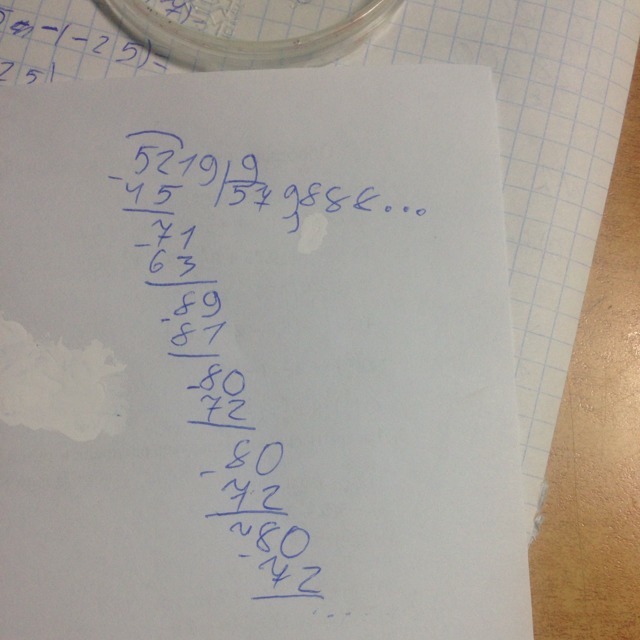 - (-25)=
25|
5219|9
-45 |579,888...
-71
63
-89
81
-80
72
-80
72
-80
72
...